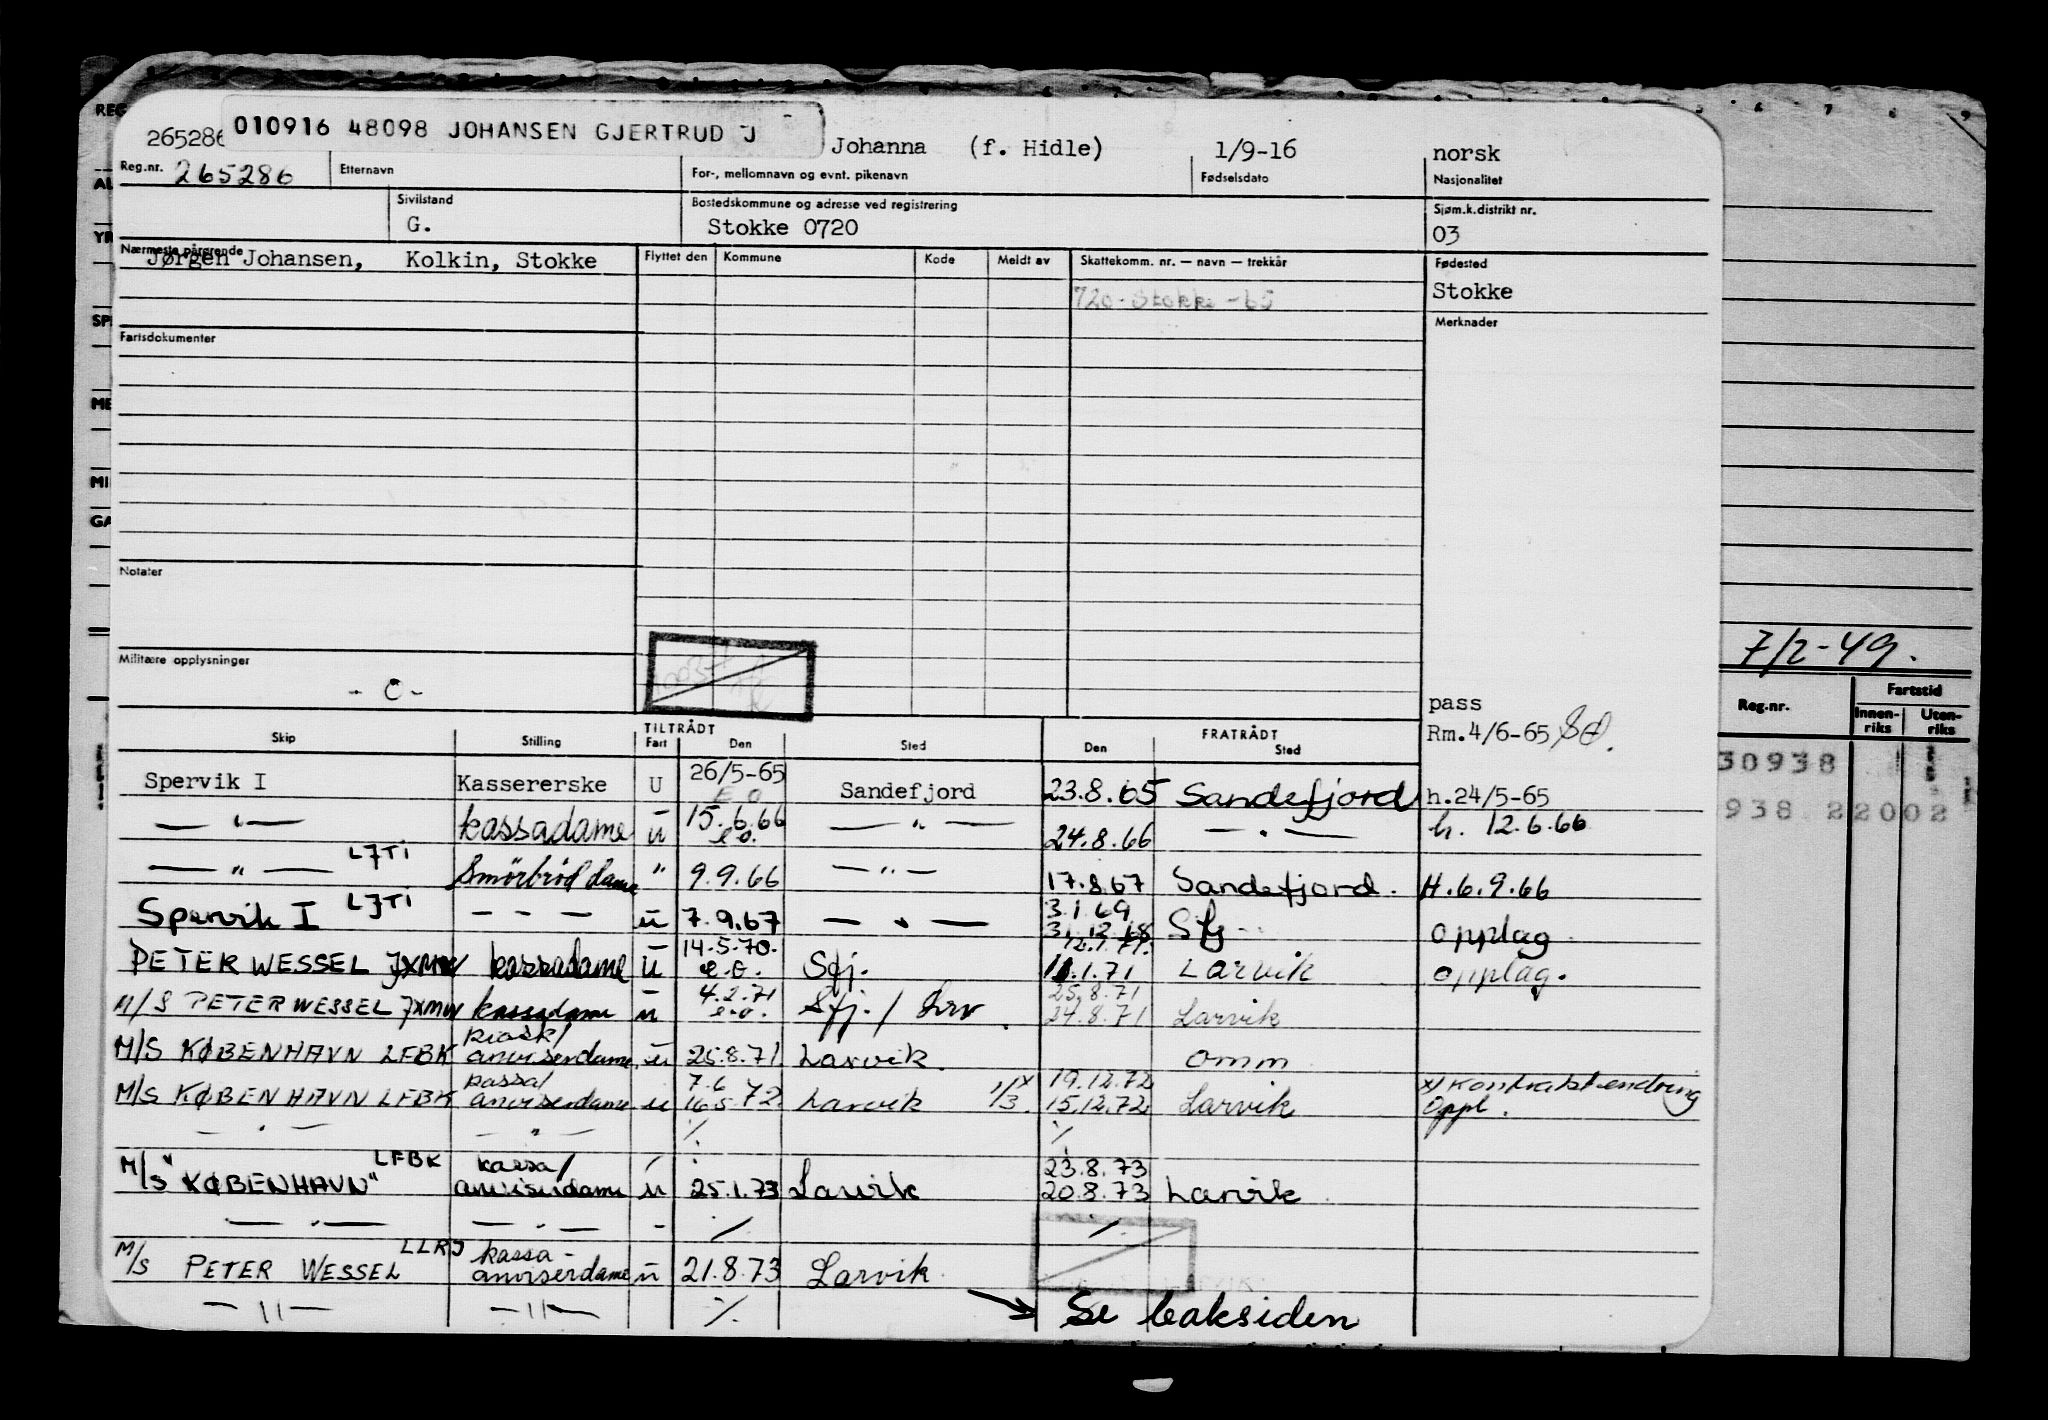 265286 010916 48098 JOHANSEN GJERTRUD J Johanna (f. Hidle) 1/9-16 norsk
Reg.nr. 265286 Etternavn For-, mellomnavn og evnt. pikenavn Fødselsdato Nasjonalitet
Sivilstand Bostedskommune og adresse ved registrering Sjøm.k.distrikt nr.
G. Stokke 0720 03
Nærmeste pårørende Flyttet den Kommune Kode Meldt av Skattekomm. nr. — navn — trekkår Fødested
Jørgen Johansen, Kolkin, Stokke
720 - Stokke - 65 Stokke
Fartsdokumenter Merknader
Notater
Militære opplysninger
- 0 -
7/2-49.
pass
Reg.nr. Fartstid
Innen-riks Uten-riks
TILTRÅDT FRATRÅDT Rm.4/6-65
Skip Stilling Fart Den Sted Den Sted
30938
Spervik I Kassererske U 26/5-65 Sandefjord 23.8.65 Sandefjord h.24/5-65
E O
938 22002
— " — kassadame u 15.6.66 e.o. — " — 24.8.66 — " — h. 12.6.66
— " — LJTI Smörbröd dame " 9.9.66 — " — 17.8.67 Sandefjord. H.6.9.66
Spervik I LJTI — — — u 7.9.67 — " — 3.1.69 31.12.68 Sfj. opplag
PETER WESSEL JXMW kassadame u 14.5.70. e.o. Sfj. 12.1.71. 11.1.71 Larvik opplag.
M/S PETER WESSEL JXMW kassadame u 4.2.71 e.o. Sfj. / Lrv 25.8.71 24.8.71 Larvik
M/S KØBENHAVN LFBK kiosk/ anviserdame u 25.8.71 Larvik omm
M/S KØBENHAVN LFBK kassa/ anviserdame u 7.6 16.5.72 Larvik 1/3 x 19.12.72 15.12.72 Larvik x) Kontraktsendring Oppl.
— " — — " — ⁒ ⁒
M/S "KØBENHAVN" LFBK kassa/ anviserdame u 25.1.73 Larvik 23.8.73 20.8.73 Larvik
— " — — " — - ⁒ ⁒
M/S PETER WESSEL LLRJ kassa- anviserdame u 21.8.73 Larvik
— " — — " — ⁒ → Se baksiden